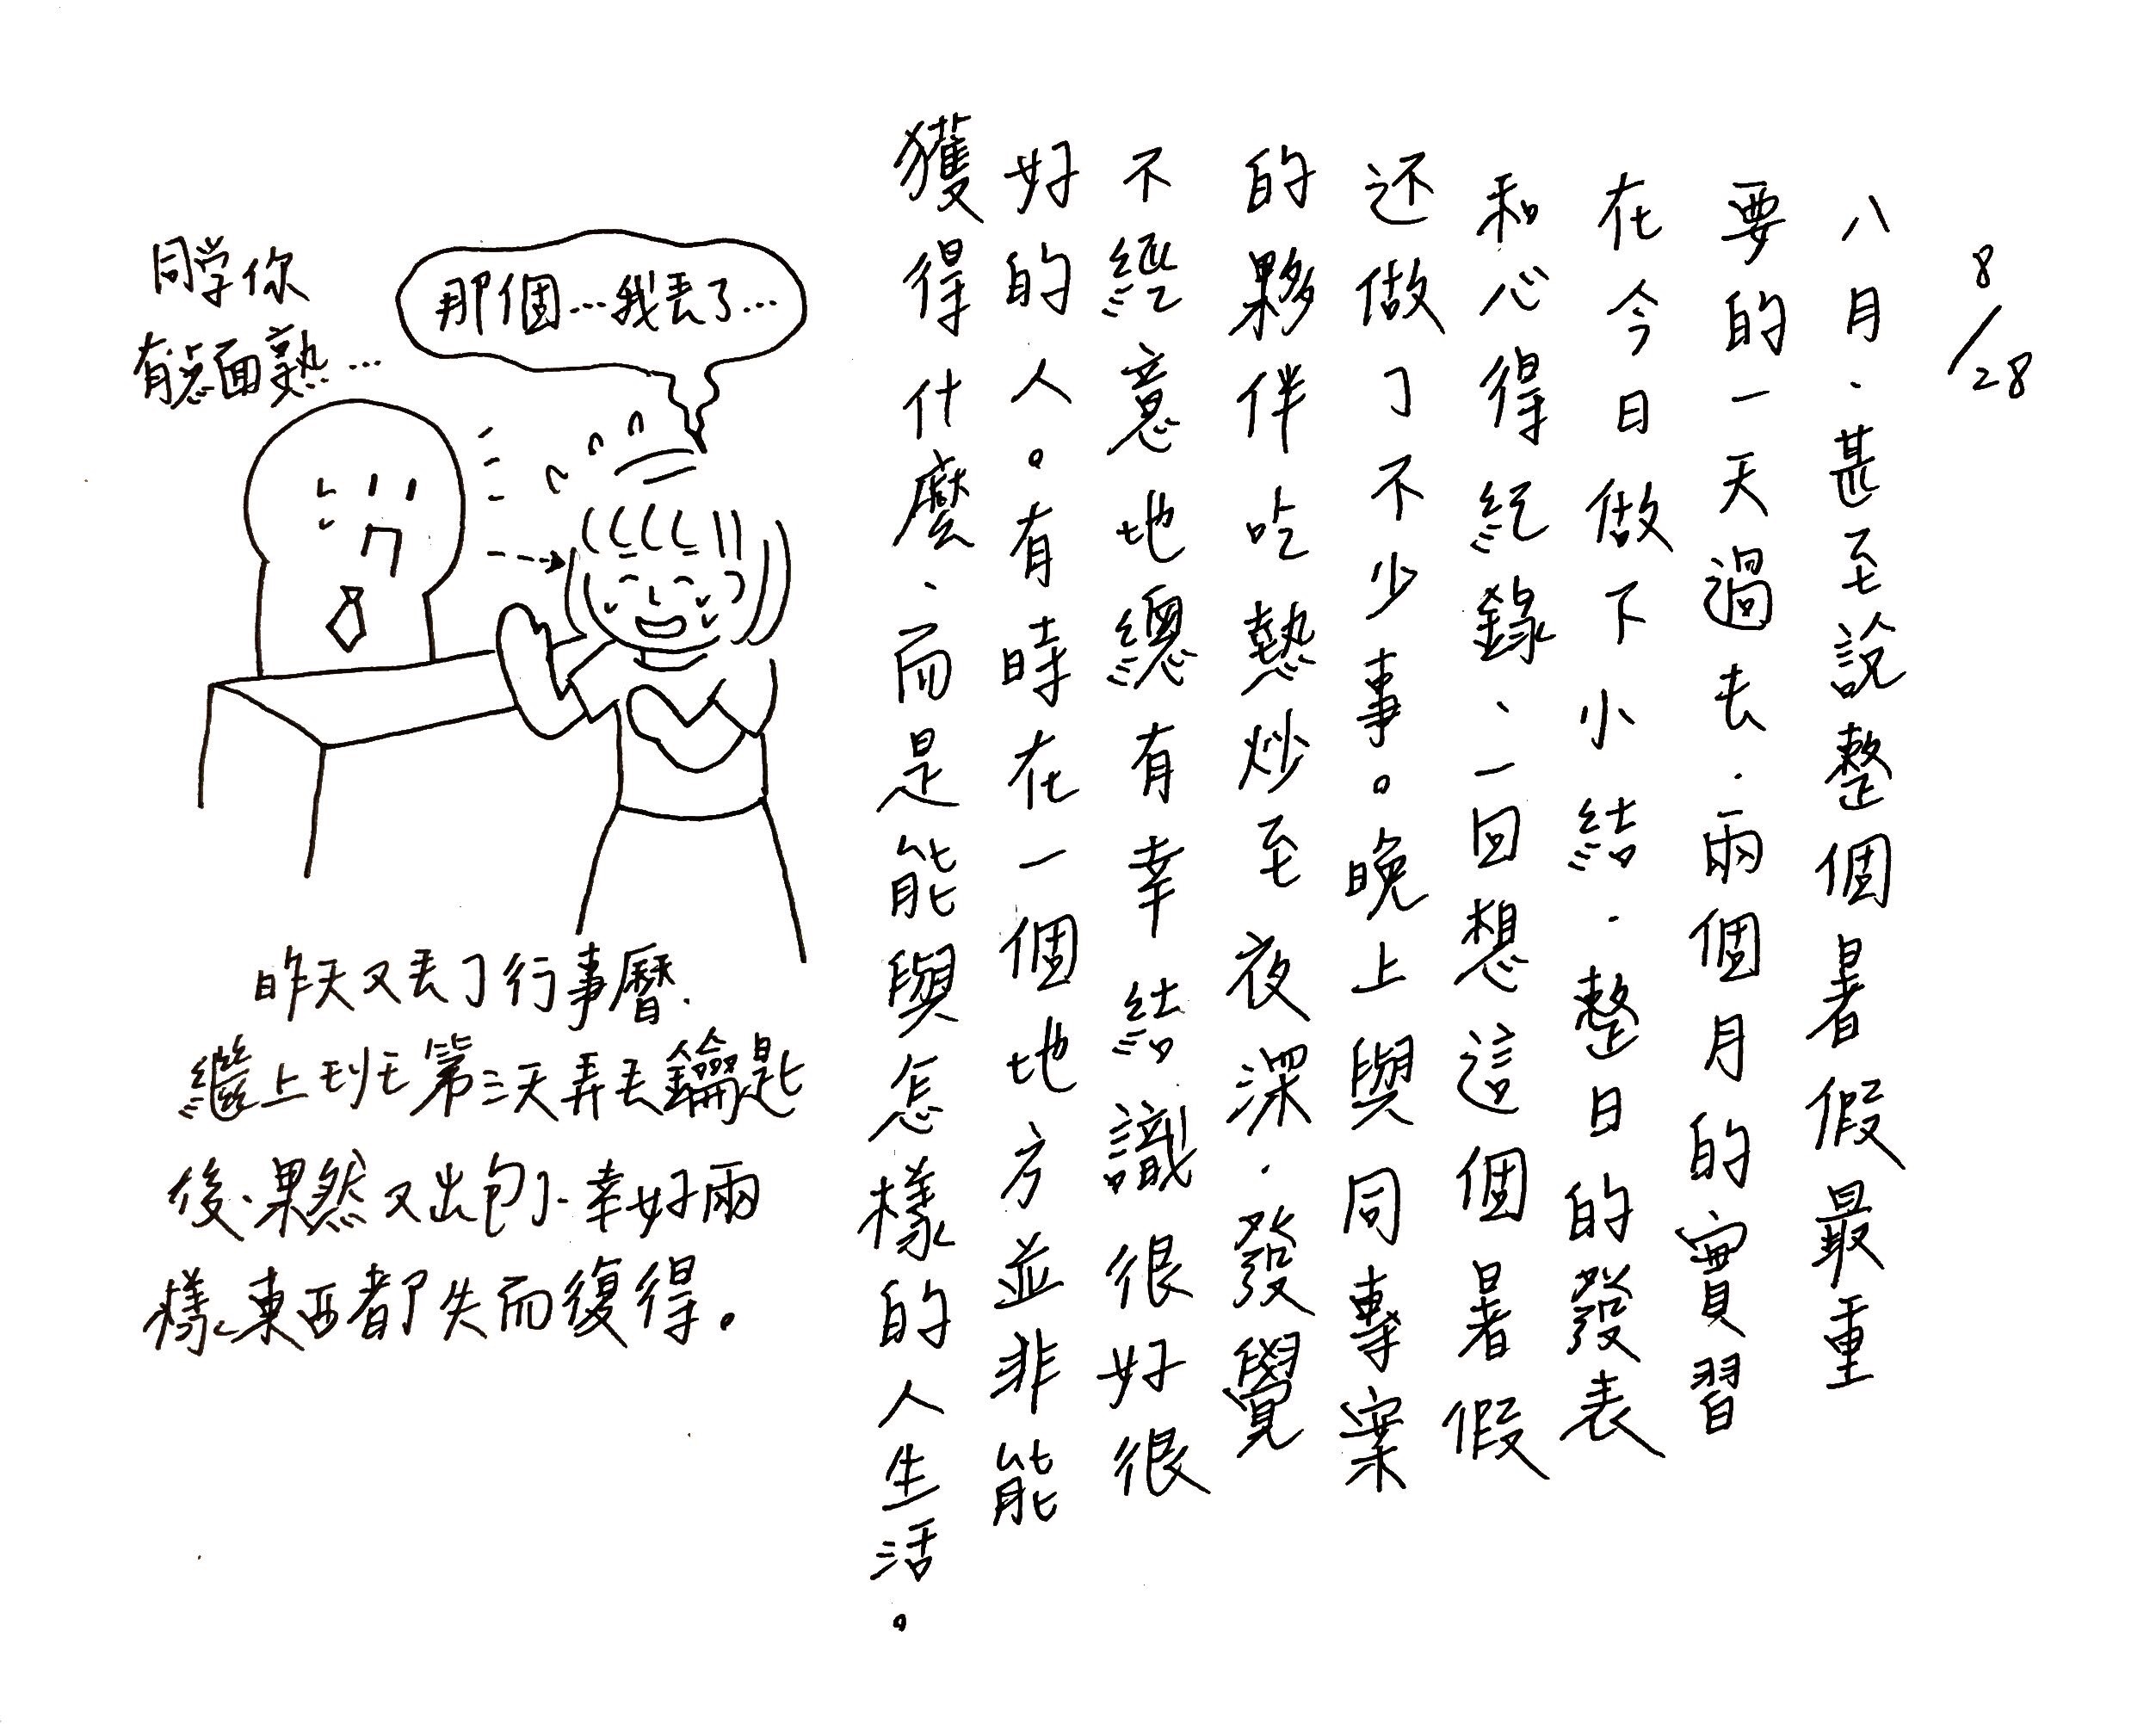 8/28
八月，甚至說整個暑假最重
要的一天過去，兩個月的實習
在今日做下小結，整日的發表
和心得紀錄，一回想這個暑假
还做了不少事。晚上與同專案
的夥伴吃熱炒至夜深，發覺
不經意地總有幸結識很好很
好的人。有時在一個地方並非能
獲得什麼，而是能與怎樣的人生活。
同学你
有點面熟…
那個…我丟了…
昨天又丟了行事曆，
繼上班第二天弄丟鑰匙
後，果然又出包了，幸好兩
樣東西都失而復得。